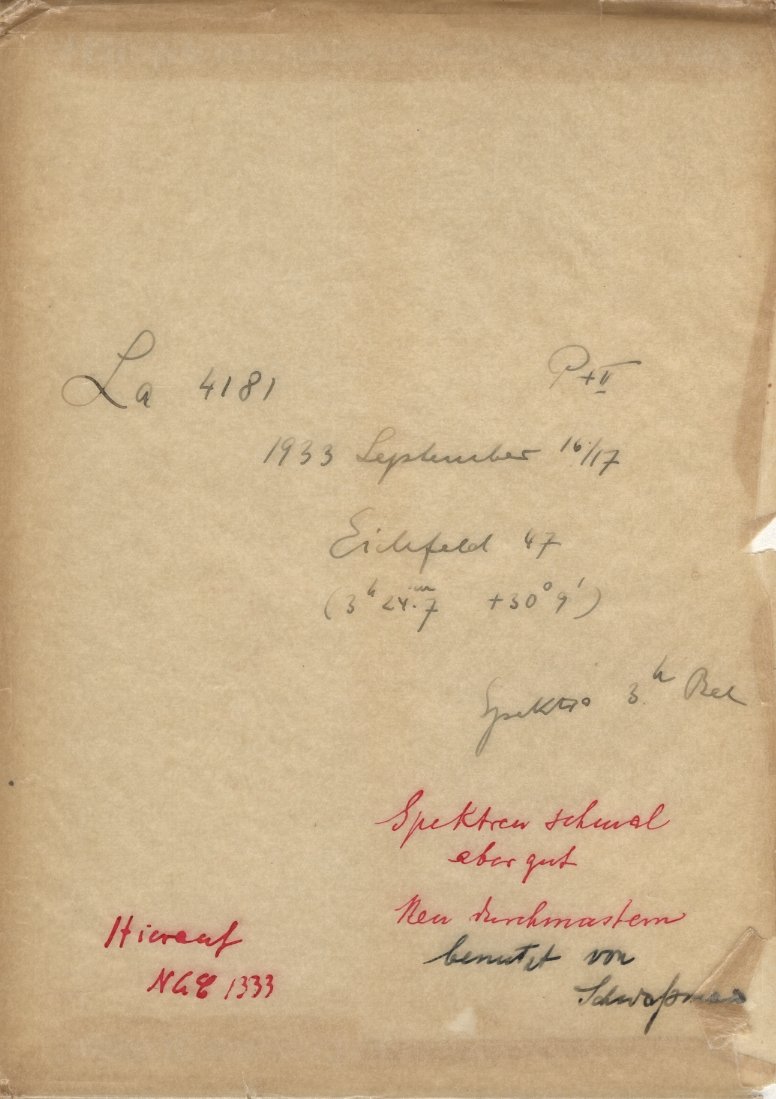 La 4181 P + II
1933 September 16/17
Eichfeld 47
(3h 24.m7 +30° 9')
Spektro 3.h Bel
Spektren schmal
aber gut
Neu durchmustern
benutzt von
Schwaßmann
Hierauf
NGC 1333